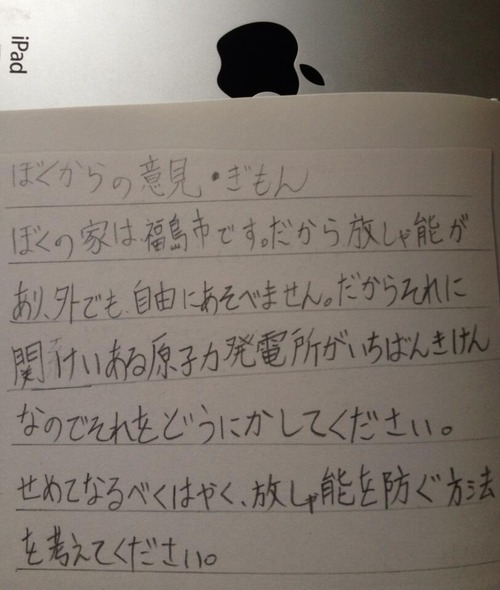 iPad
ぼくからの意見・ぎもん
ぼくの家は福島市です。だから放しゃ能が
あり、外でも自由にあそべません。だからそれに
関けいある原子力発電所がいちばんきけん
なのでそれをどうにかしてください。
せめてなるべくはやく、放しゃ能を防ぐ方法
を考えてください。